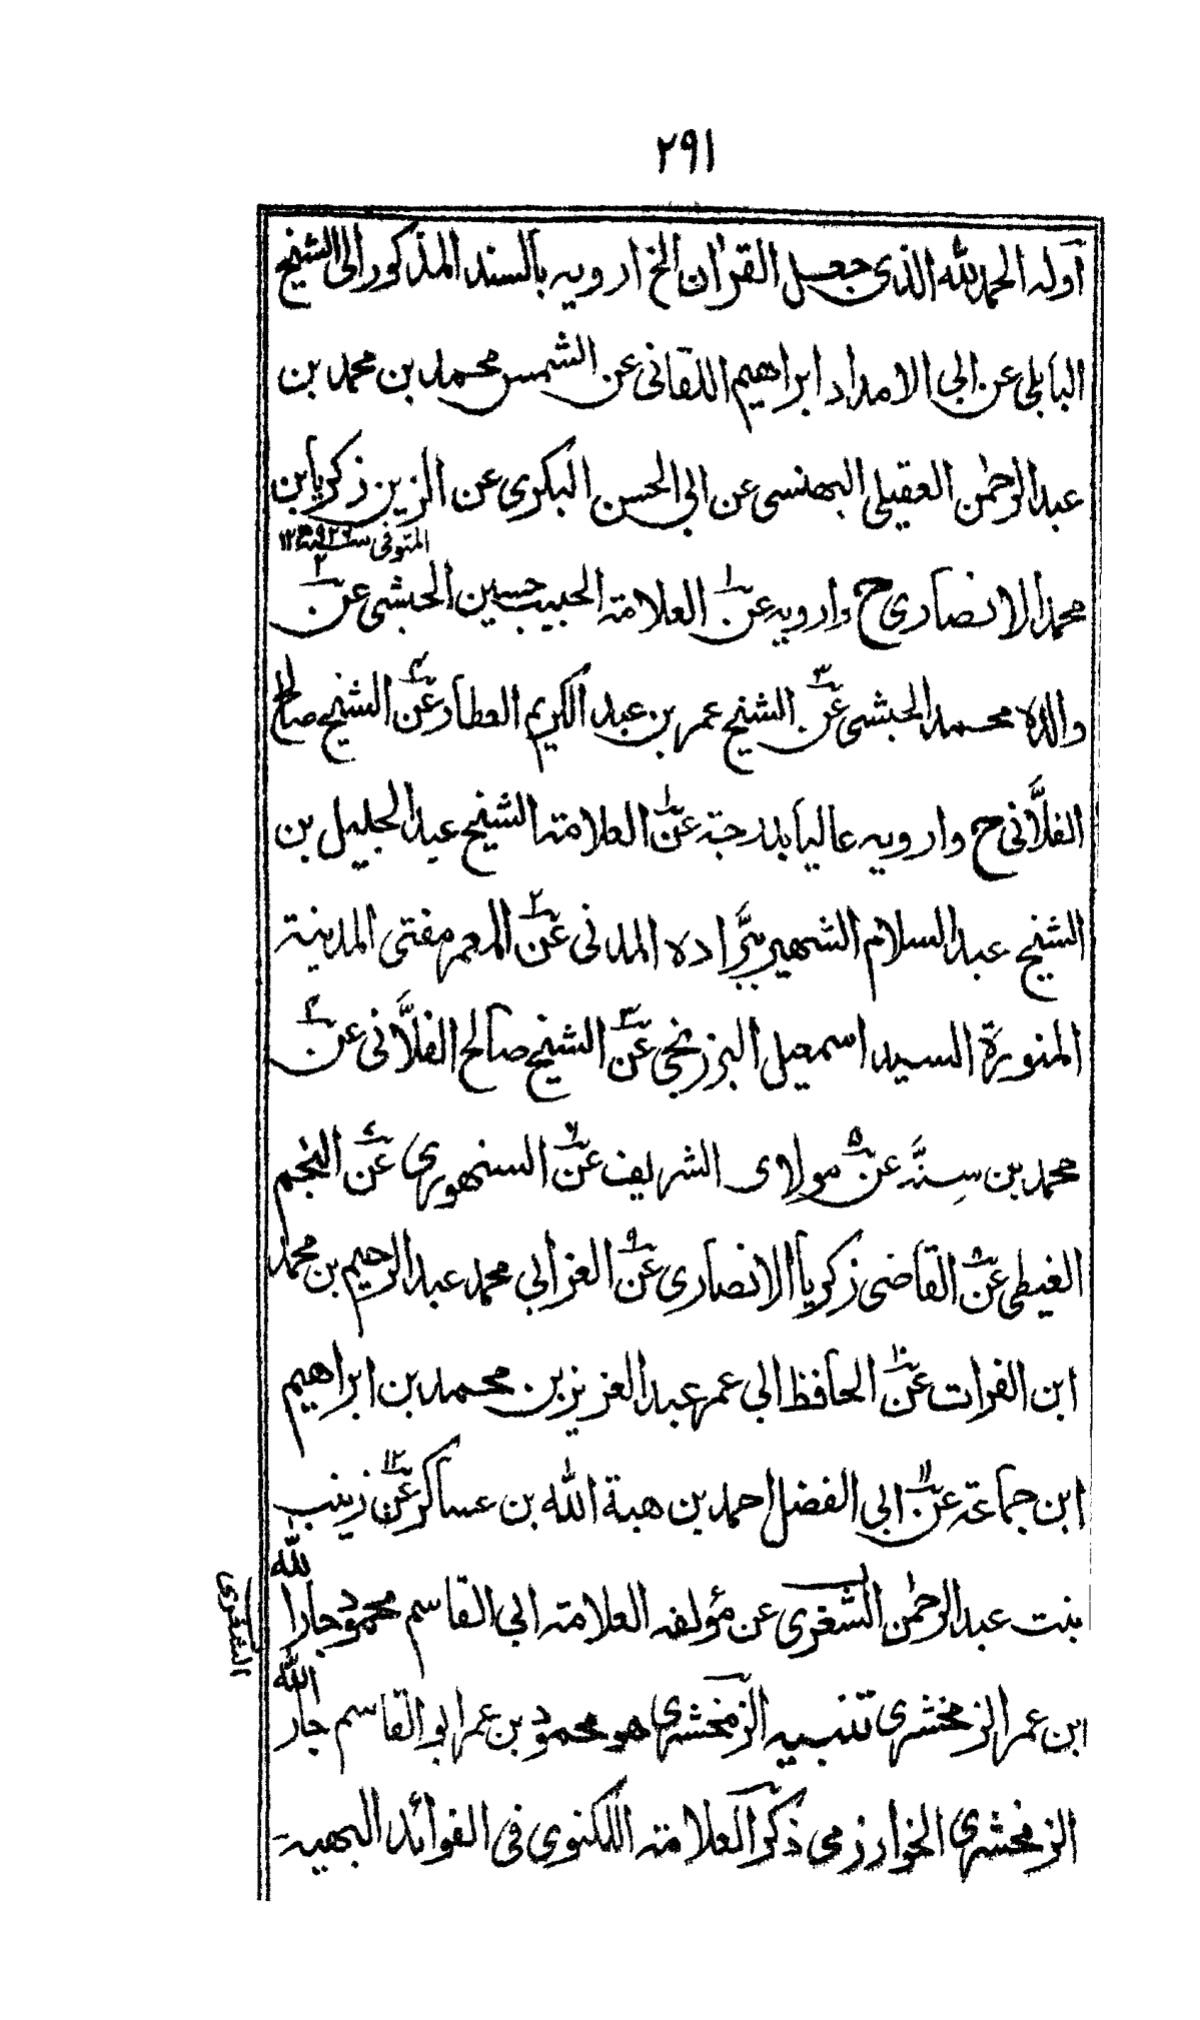 ٢٩١
اوله الحمد لله الذى جعل القران الخ ارويه بالسند المذكور الى الشيخ
البابلى عن ابى الامداد ابراهيم اللقانى عن الشمس محمد بن محمد بن
عبد الرحمن العقيلى البهنسى عن ابى الحسن البكرى عن الزين زكريا بن
المتوفى سنة ٩٢٦ھ ١٢
محمد الانصارى ح وارويه عن١ العلامة الحبيب حسين الحبشى عن٢
والده محمد الحبشى عن٣ الشيخ عمر بن عبد الكريم العطار عن٤ الشيخ صالح
الفلَّانى ح وارويه عاليا بدرجة عن١ العلامة الشيخ عبد الجليل بن
الشيخ عبد السلام الشهير ببَّراده المدنى عن٢ المعمر مفتى المدينة
المنورة السيد اسمعيل البرزنجى عن٣ الشيخ صالح الفلَّانى عن٤
محمد بن سِنَّه عن٥ مولاى الشريف عن٦ السنهورى عن٧ النجم
الغيطى عن٨ القاضى زكريا الانصارى عن٩ العز ابى محمد عبد الرحيم بن محمد
ابن الفرات عن١٠ الحافظ ابى عمر عبد العزيز بن محمد بن ابراهيم
ابن جماعة عن١١ ابى الفضل احمد بن هبة الله بن عساكر عن١٢ زينب
بنت عبد الرحمن الشغرى عن مؤلفه العلامة ابى القاسم محمود جارا لله
الشعرى
ابن عمر الزمخشرى تنبيه الزمخشرى هو محمود بن عمر ابو القاسم جار الله
الزمخشرى الخوارزمى ذكر العلامة اللكنوى فى الفوائد البهية